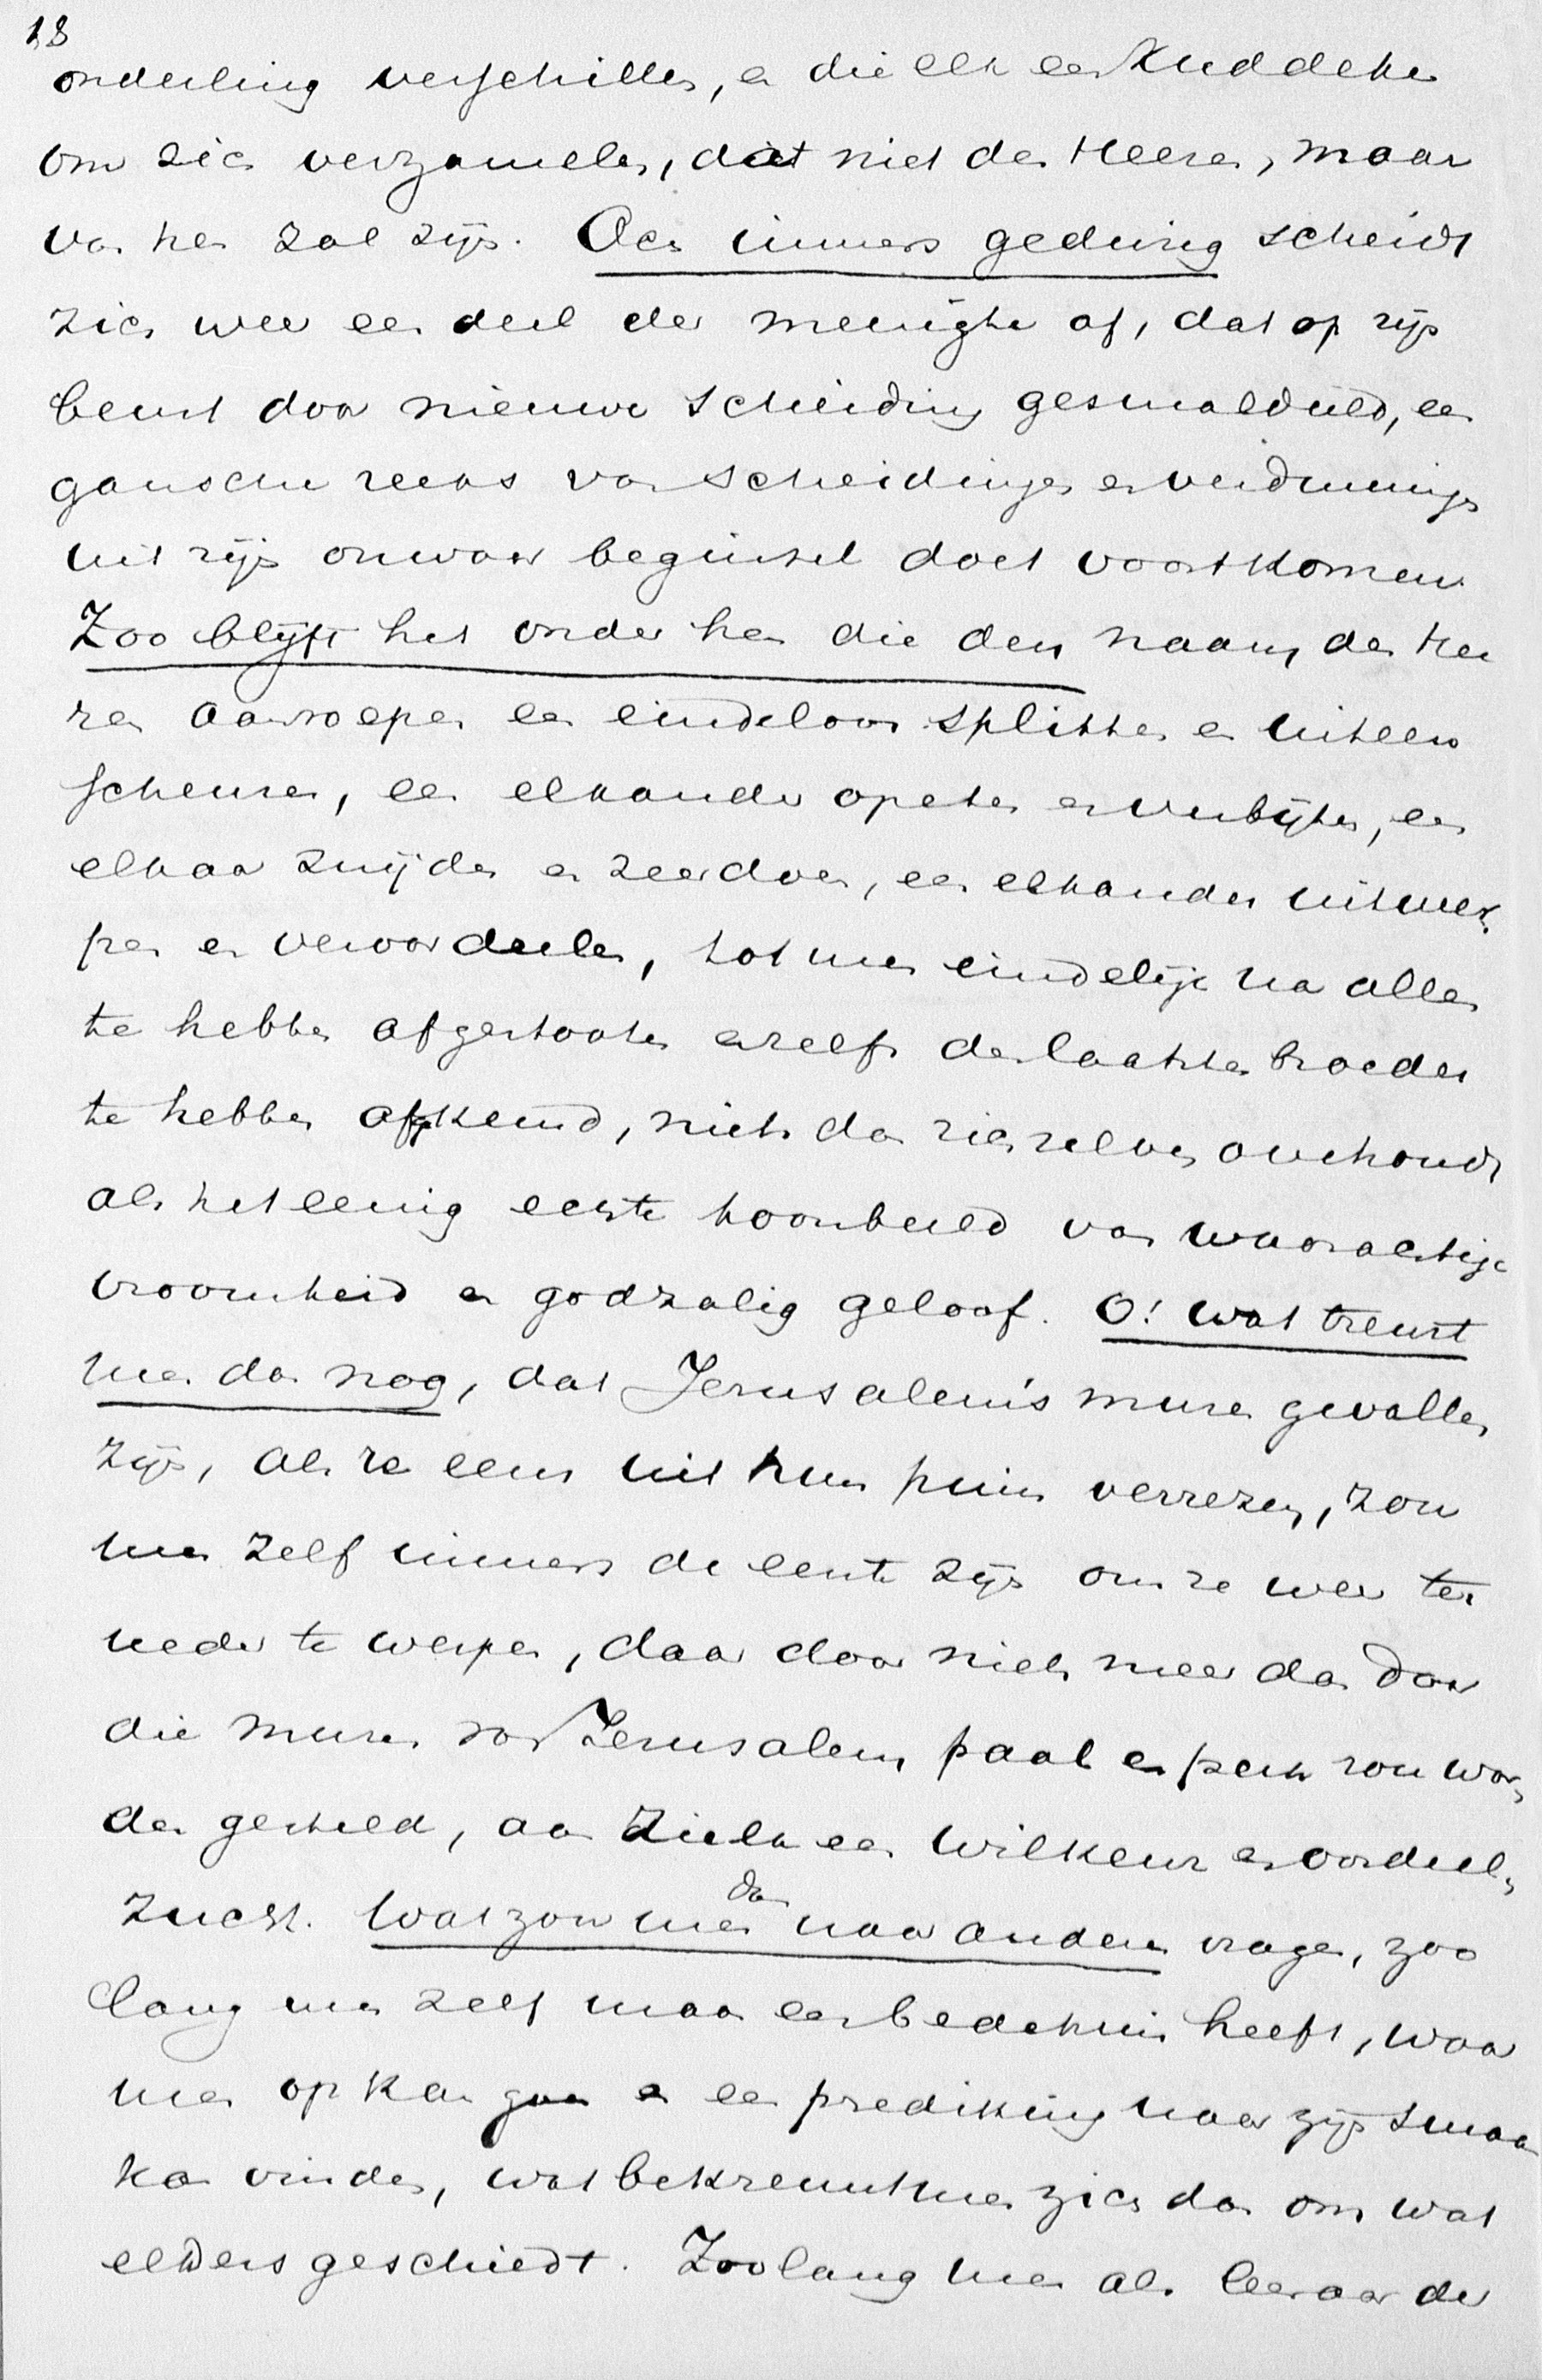 18
onderling verschillen, en die elk een Kuddeken
om zich verzamelen, dat niet des Heeren, maar
van hen zal zijn. Och immers geduring scheidt
zich weer een deel der menigte af, dat op zijn
beurt door nieuwe scheiding gesmaldeeld, een
gansche reeks van scheidingen en verdunningen
uit zijn onwaar beginsel doet voortkomen.
Zoo blijft het onder hen die den naam des Hee
ren aanroepen een eindeloos splitsen en uiteen
scheuren, een elkander opeten en verbijten, een
elkaar snijden en zeer doen, een elkander uitwer-
pen en veroordeelen, tot men eindelijk na allen
te hebben afgestooten en zelfs den laatsten broeder
te hebben afgekeurd, niets dan zichzelven overhoudt
als het eenig echte toonbeeld van waarachtige
vroomheid en godzalig geloof. O! wat treurt
men dan nog, dat Jerusalem's muren gevallen
zijn, als ze eens uit hun puin verrezen, zou
men zelf immers de eerste zijn om ze weer ter
neder te werpen, daar door niets meer dan door
die muren van Jerusalem paal en perk zou wor-
den gesteld, aan zulk een wilkeur en oordeel-
zucht. Wat zou men dan naar anderen vragen, zoo
lang men zelf maar een bedehuis heeft, waar
men op kan gaan en een prediking naar zijn smaak
kan vinden, wat bekreunt men zich dan om wat
elders geschiedt. Zoolang men als leeraar de